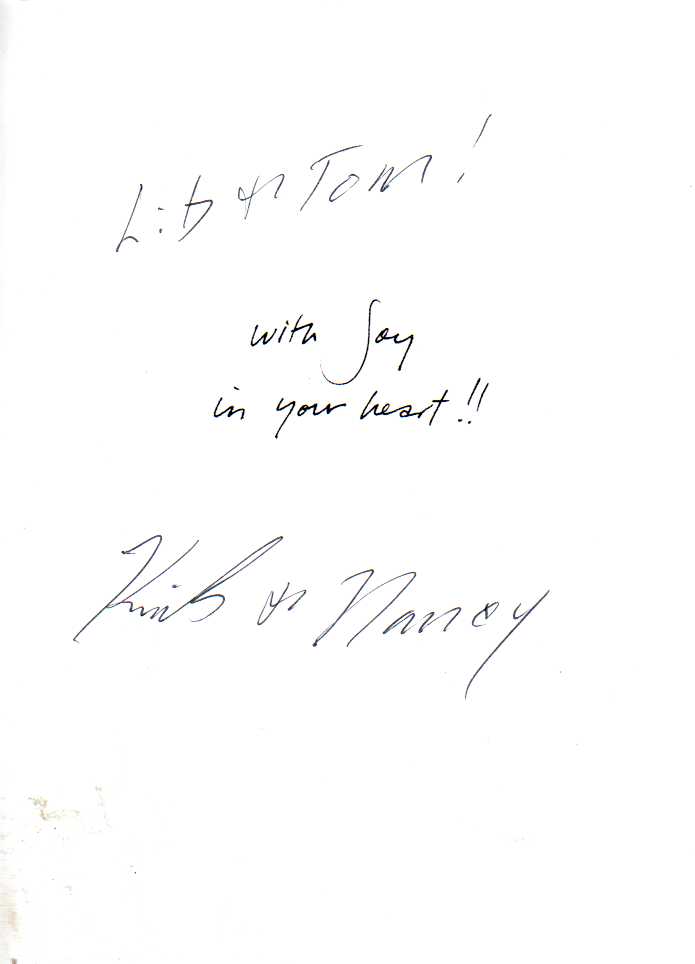 Lib & Tom!
with Joy
in your heart!!
Kirk & Nancy